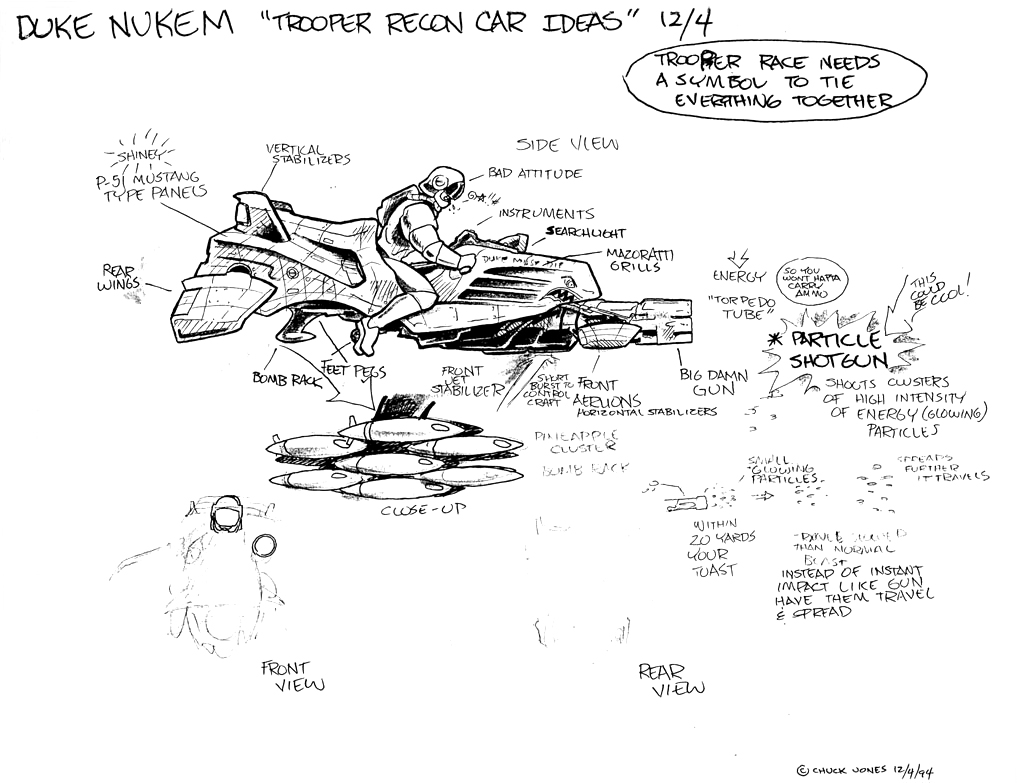 DUKE NUKEM "TROOPER RECON CAR IDEAS" 12/4
TROOPER RACE NEEDS
A SYMBOL TO TIE
EVERYTHING TOGETHER
SIDE VIEW
SHINEY
P-51 MUSTANG
TYPE PANELS
VERTICAL
STABILIZERS
BAD ATTITUDE
INSTRUMENTS
SEARCHLIGHT
MAZORATTI
GRILLS
REAR
WINGS
BOMB RACK
FEET PEGS
FRONT
JET
STABILIZER
SHORT
BURST TO
CONTROL
CRAFT
FRONT
AERLIONS
HORIZONTAL STABILIZERS
BIG DAMN
GUN
ENERGY
"TORPEDO
TUBE"
SO YOU
WONT HAFTA
CARRY
AMMO
THIS
COULD
BE COOL!
* PARTICLE
SHOTGUN
SHOOTS CLUSTERS
OF HIGH INTENSITY
OF ENERGY (GLOWING)
PARTICLES
PINEAPPLE
CLUSTER
BOMB RACK
CLOSE-UP
SMALL
GLOWING
PARTICLES
SPREADS
FURTHER
IT TRAVELS
WITHIN
20 YARDS
YOUR
TOAST
THAN NORMAL
INSTEAD OF INSTANT
IMPACT LIKE GUN
HAVE THEM TRAVEL
& SPREAD
FRONT
VIEW
REAR
VIEW
© CHUCK JONES 12/4/94